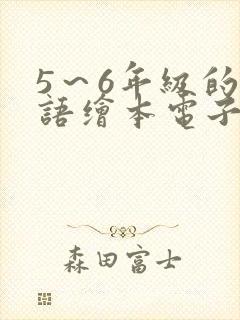 5~6年級的
語繪本電子
森田富士